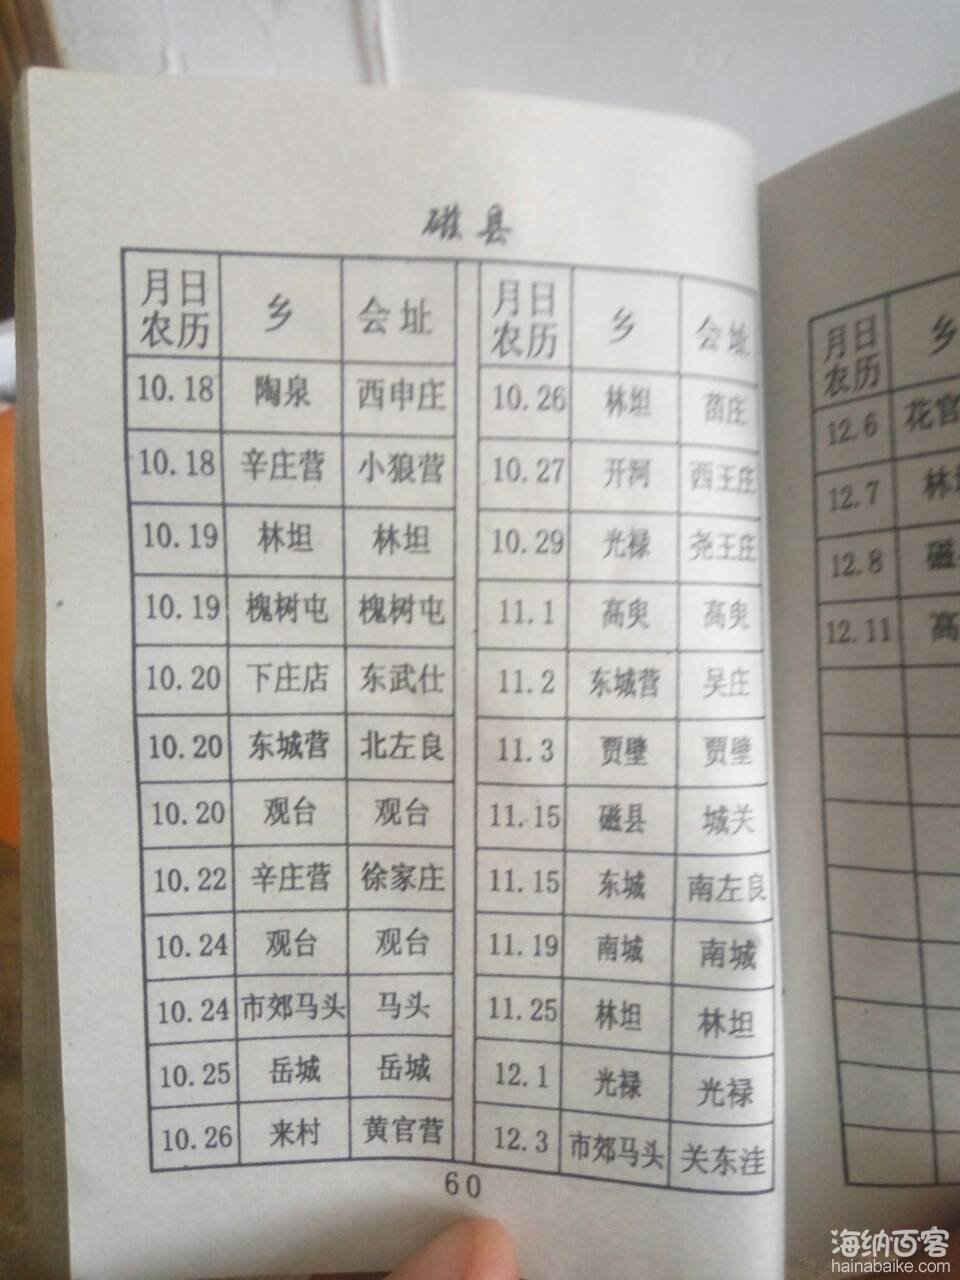 磁县
月日农历 乡 会址 月日农历 乡 会址
10.18 陶泉 西申庄 10.26 林坦 苗庄
10.18 辛庄营 小狼营 10.27 开河 西王庄
10.19 林坦 林坦 10.29 光禄 尧王庄
10.19 槐树屯 槐树屯 11.1 高臾 高臾
10.20 下庄店 东武仕 11.2 东城营 吴庄
10.20 东城营 北左良 11.3 贾壁 贾壁
10.20 观台 观台 11.15 磁县 城关
10.22 辛庄营 徐家庄 11.15 东城 南左良
10.24 观台 观台 11.19 南城 南城
10.24 市郊马头 马头 11.25 林坦 林坦
10.25 岳城 岳城 12.1 光禄 光禄
10.26 来村 黄官营 12.3 市郊马头 关东洼
60
月日农历 乡
12.6 花官
12.7 林
12.8 磁
12.11 高
海纳百客
hainabaike.com